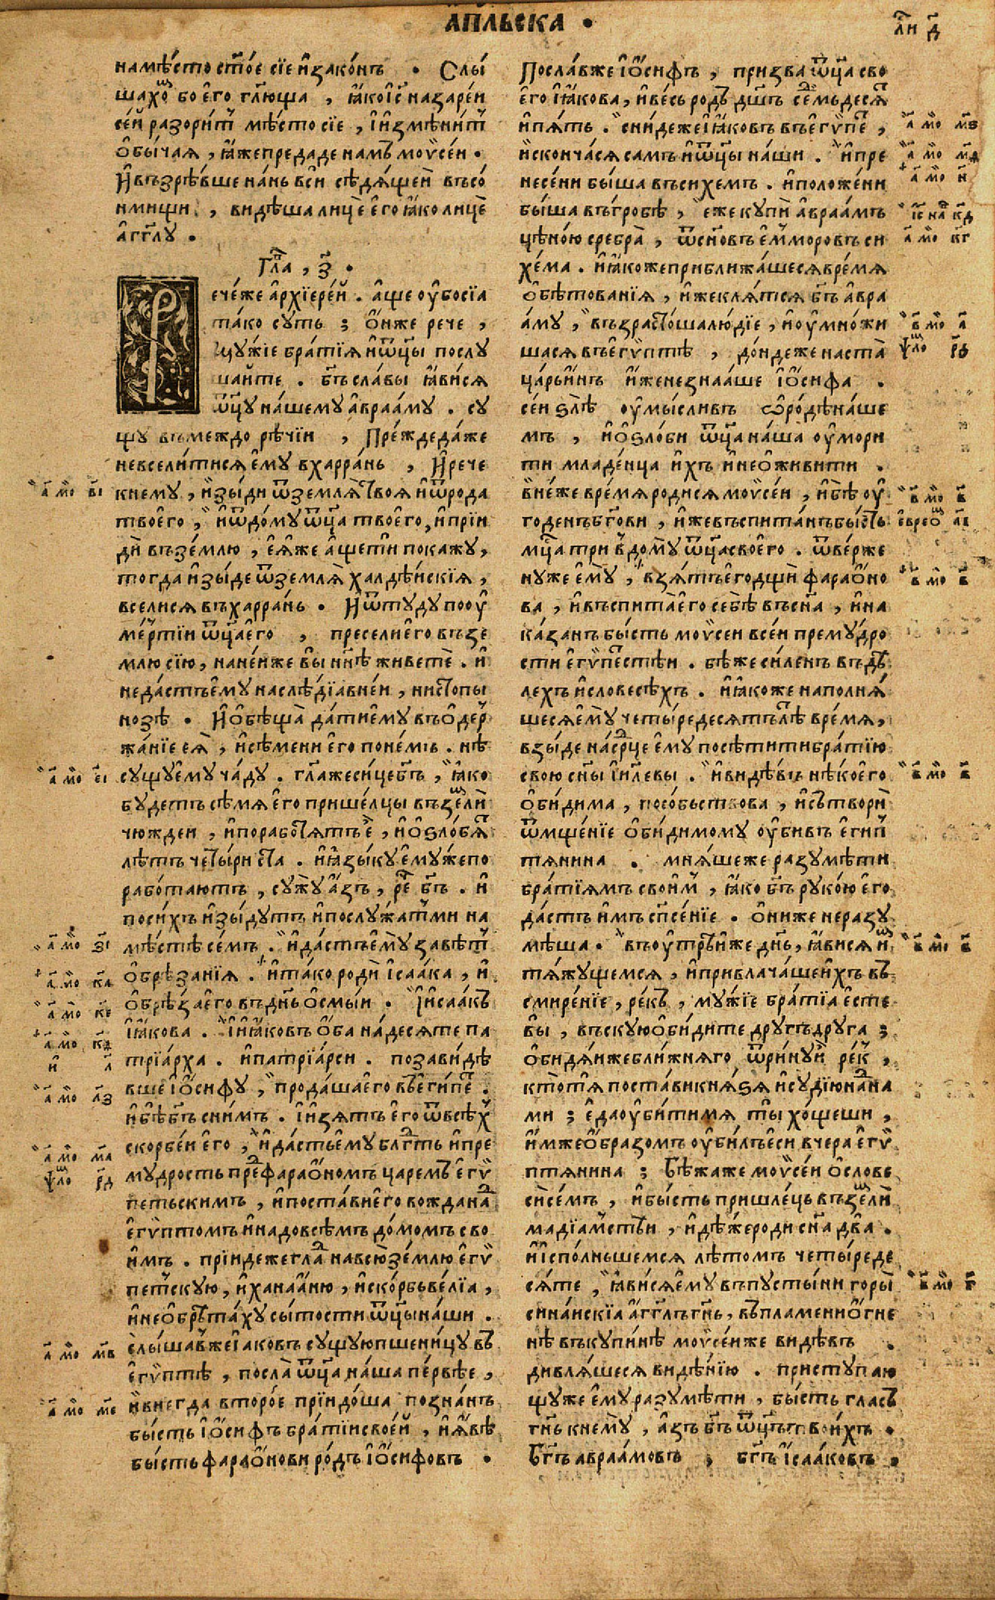 а҆пⷭ҇льска ·
на мѣ́сто ст҃о́е сїѐ и҆ зако́нъ · Слы́
шахо́мⷨ бо е҆го̀ гл҃ю́ща , ꙗ҆́ко і҆с҃ назаре́и
се́и разори́тⷮ мѣ́сто сїѐ , и҆ и҆змѣни́тⷮ
ѻ҆бы́чаꙗ , ꙗ҆́же предаде на́мъ моѷсе́и ·
И҆ възрѣ́вше на́нь вси̑ сѣдѧ́щеи въ со́
нмищи , ви́дѣша лицѐ е҆го̀ ꙗ҆́ко лицѐ
а҆́гг҃лу ·
Гла҃ , з҃ ·
Рече́ же а҆рхїере́й · а҆́ще ᲂу҆̀бо сїа̀
та́ко су́ть ; ѻ҆́нже рече ,
мꙋ́жїе бра́тїꙗ и҆ ѿц҃ы послꙋ́
шайте · бг҃ъ сла́вы ꙗ҆ви́сѧ
ѿц҃ꙋ на́шемꙋ а҆враа́мꙋ · сꙋ́
щꙋ въ междорѣ́чїи , Пре́жде да́же
не всели́тисѧ е҆мꙋ̀ в харра́нь , И҆ рече
к немꙋ̀ , и҆зы́ди ѿ землѧ̀ твоеꙗ̀ и҆ ѿ рода
твоего̀ , и҆ ѿ до́мꙋ ѿц҃а твоего̀ , и҆ прїи
ди̑ въ зе́млю , е҆ѧ́же а҆́ще ти̑ покажꙋ̀ ,
тогда̀ и҆зы́де ѿ землѧ̀ халдѣ́искїꙗ ,
вселисѧ въ харра́нь · И҆ ѿтꙋдꙋ по ᲂу҆
ме́ртїи ѿц҃а е҆го̀ , пресели̑ е҆го̀ въ зе
млю сїю̀ , на не́иже вы̀ нн҃ѣ живетѐ · и҆
не да́стъ е҆мꙋ̀ наслѣ́дїꙗ в не́и , ни стопы̀
но́зѣ · И҆ ѻ҆бѣща̀ да́ти е҆мꙋ̀ въ ѻ҆дер
жа́нїе еѧ̀ , и҆ сѣ́мени е҆го̀ по не́мъ · не
сꙋ́щꙋ е҆мꙋ̀ ча́дꙋ · гл҃а же си́це бг҃ъ , ꙗ҆́ко
бꙋ́детъ сѣ́мѧ е҆го̀ прише́лцы въ земли̑
чюжде́и , и҆ порабо́тѧтъ е҆̀ , и҆ ѻ҆ѕло́бѧтⷮ
лѣ́тъ четы́риста · и҆ ꙗ҆зы́кꙋ е҆мꙋ́же по
рабо́таютъ , сꙋжꙋ̀ а҆́зъ , ре́чⷱ҇е бг҃ъ · и҆
по си́хъ и҆зы́дꙋтъ и҆ послꙋ́жатъ ми на
мѣ́стѣ се́мъ · и҆ да́стъ е҆мꙋ̀ завѣ́тⷮ
ѻ҆брѣ́занїꙗ · и҆ та́ко роди̑ і҆саа́ка , и҆
ѻ҆брѣ́за е҆го̀ въ дн҃ь ѻ҆смы́и · и҆ і҆саа́къ
і҆а́кова · и҆ і҆а́ковъ ѻ҆́ба на́десѧте па
трїа́рха · и҆ патрїа́рси · позави́дѣ
вше і҆ѡ́сифꙋ , прода́ша е҆го̀ въ е҆ги́петⷮ ·
и҆ бѣ̀ бг҃ъ с ни́мъ · и҆ и҆з̾ѧ́тъ е҆го̀ ѿ всѣ́хⷯ
ско́рбеи е҆го̀ , и҆ да́сть е҆мꙋ̀ блгⷣть и҆ пре
мꙋ́дрость пре́дⷣ фараѻ҆́номъ царе́мъ е҆гѷ
петьскимъ , и҆ поста́ви е҆го̀ вожда̀ надⷣ
е҆гѵ́птомъ и҆ надо всѣ́мъ до́момъ сво
и҆́мъ · прїи́де же гла́дⷣ на всю̀ зе́млю е҆гѵ
петскꙋю , и҆ ханаа́ню , и҆ ско́рбь ве́лїа ,
и҆ не ѻ҆брѣта́хꙋ сы́тости ѿц҃ы на́ши ·
слы́шав же і҆а́ковъ сꙋ́щꙋю пшени́цꙋ въ
е҆гѵ́птѣ , посла̀ ѿц҃а на́ша пе́рвѣе ,
и҆ внегда̀ второ́е прїидо́ша позна́нъ
бы́сть і҆ѡ́сифъ бра́тїи свое́й , и҆ ꙗ҆́вѣ
бы́сть фараѻ҆́нови ро́дъ і҆ѡ́сифовъ ·
Посла́в же і҆ѡ́сифъ , призва̀ ѿц҃а сво
его̀ і҆а́кова , и҆ ве́сь ро́дъ дш҃ъ се́дмьдесѧтⷮ
и҆ пѧ́ть · сни́де же і҆а́ковъ въ е҆гѵ́петⷮ ,
и҆ сконча́сѧ са́мъ и҆ ѿц҃ы на́ши · и҆ пре
несе́ни бы́ша въ сихе́мъ · и҆ положе́ни
бы́ша въ гро́бѣ , е҆́же кꙋпи̑ а҆враа́мъ
цѣно́ю сребра̀ , ѿ сн҃о́въ е҆мморовъ си
хе́ма · и҆ ꙗ҆́коже приближа́шесѧ вре́мѧ
ѻ҆бѣтованїꙗ , и҆́же клѧ́тсѧ бг҃ъ а҆вра
а́мꙋ , възрасто́ша лю́дїе , и҆ ᲂу҆мно́жи
шасѧ въ е҆гѵ́птѣ , до́ндеже наста̀
ца́рь и҆́нъ и҆́же не зна́аше і҆ѡ́сифа ·
се́и ѕлѣ̀ ᲂу҆мы́сливъ ѡ҆ ро́дѣ на́ше
мъ , и҆ ѻ҆ѕло́би ѿц҃а на́ша ᲂу҆мори
ти младе́нца и҆́хъ и҆ не ѻ҆живи́ти ·
В не́же вре́мѧ роди́сѧ моѷсе́и , и҆ бѣ̀ ᲂу҆
го́денъ бг҃ови , и҆́же въспита́нъ бы́сть
мц҃а три̑ в до́мꙋ ѿц҃а своего̀ · ѿве́рже
нꙋ же е҆мꙋ̀ , взѧ́тъ е҆го̀ дщи̑ фараѻ҆́но
ва , и҆ въспита̀ е҆го̀ себѣ̀ въ сн҃а , и҆ на
ка́занъ бы́сть моѷсеи все́и премꙋ́дро
сти е҆гѵ́петстѣи · бѣ́ же си́ленъ въ дѣ́
лехъ и҆ словесѣ́хъ · и҆ ꙗ҆́коже наполнѧ́
шесѧ е҆мꙋ̀ четы́редесѧтъ лѣ́тъ вре́мѧ ,
взы́де на се́рдце е҆мꙋ̀ посѣти́ти бра́тїю
свою̀ сн҃ы і҆и҃левы · и҆ ви́дѣвъ нѣ́коего
ѻ҆би́дима , посо́бьствова , и҆ сътвори̑
ѿмще́нїе ѻ҆би́димомꙋ ᲂу҆би́въ е҆гип
тѧнина · мнѧ́ше же разꙋмѣ́ти
бра́тїѧмъ свои́мъ , ꙗ҆́ко бг҃ъ рꙋко́ю е҆го
да́стъ и҆́мъ сп҃се́нїе · ѻ҆ни́ же не разꙋ
мѣ́ша · въ ᲂу҆́трїиже дн҃ь , ꙗ҆ви́сѧ и҆́мⷨ
тѧ́жꙋщемсѧ , и҆ привлача́ше и҆́хъ въ
смире́нїе , ре́къ , мꙋ́жїе бра́тїа е҆сте
вы̀ , въ скꙋю ѻ҆би́дите дрꙋ́гъ дрꙋ́га ;
ѻ҆би́дѧи же бли́жнѧго ѿри́нꙋ и҆̀ ре́къ ,
кто́ тѧ поста́ви кнѧ́ѕѧ и҆ сꙋдїю̀ на́дⷣ на
ми ; е҆да̀ ᲂу҆би́ти мѧ ты̀ хо́щеши ,
и҆́мже ѻ҆́бразомъ ᲂу҆би́лъ е҆си вчера̀ е҆гѵ
птѧнина ; Бѣжа́ же моѷсе́и ѻ҆ слове
си̑ се́мъ , и҆ бы́сть пришле́цъ въ земли̑
мадїа́мстѣи , и҆дѣ́же роди̑ сн҃а два̀ ·
и҆ и҆спо́лньшемсѧ лѣ́томъ четы́реде
сѧте , ꙗ҆ви́сѧ е҆мꙋ̀ въ пꙋсты́ни горы̀
сина́искїа а҆́гг҃лъ гн҃ь , въ пла́мени ѻ҆́гне
нѣ въ кꙋпинѣ̀ моѷсе́и же ви́дѣвъ ·
дивлѧ́шесѧ видѣ́нїю · пристꙋпаю
щꙋ же е҆мꙋ̀ разꙋмѣ́ти , бы́сть гла́съ
гн҃ь к немꙋ̀ , а҆́зъ бг҃ъ ѿц҃ъ твои́хъ ·
бг҃ъ а҆враа́мовъ , бг҃ъ і҆саа́ковъ ·